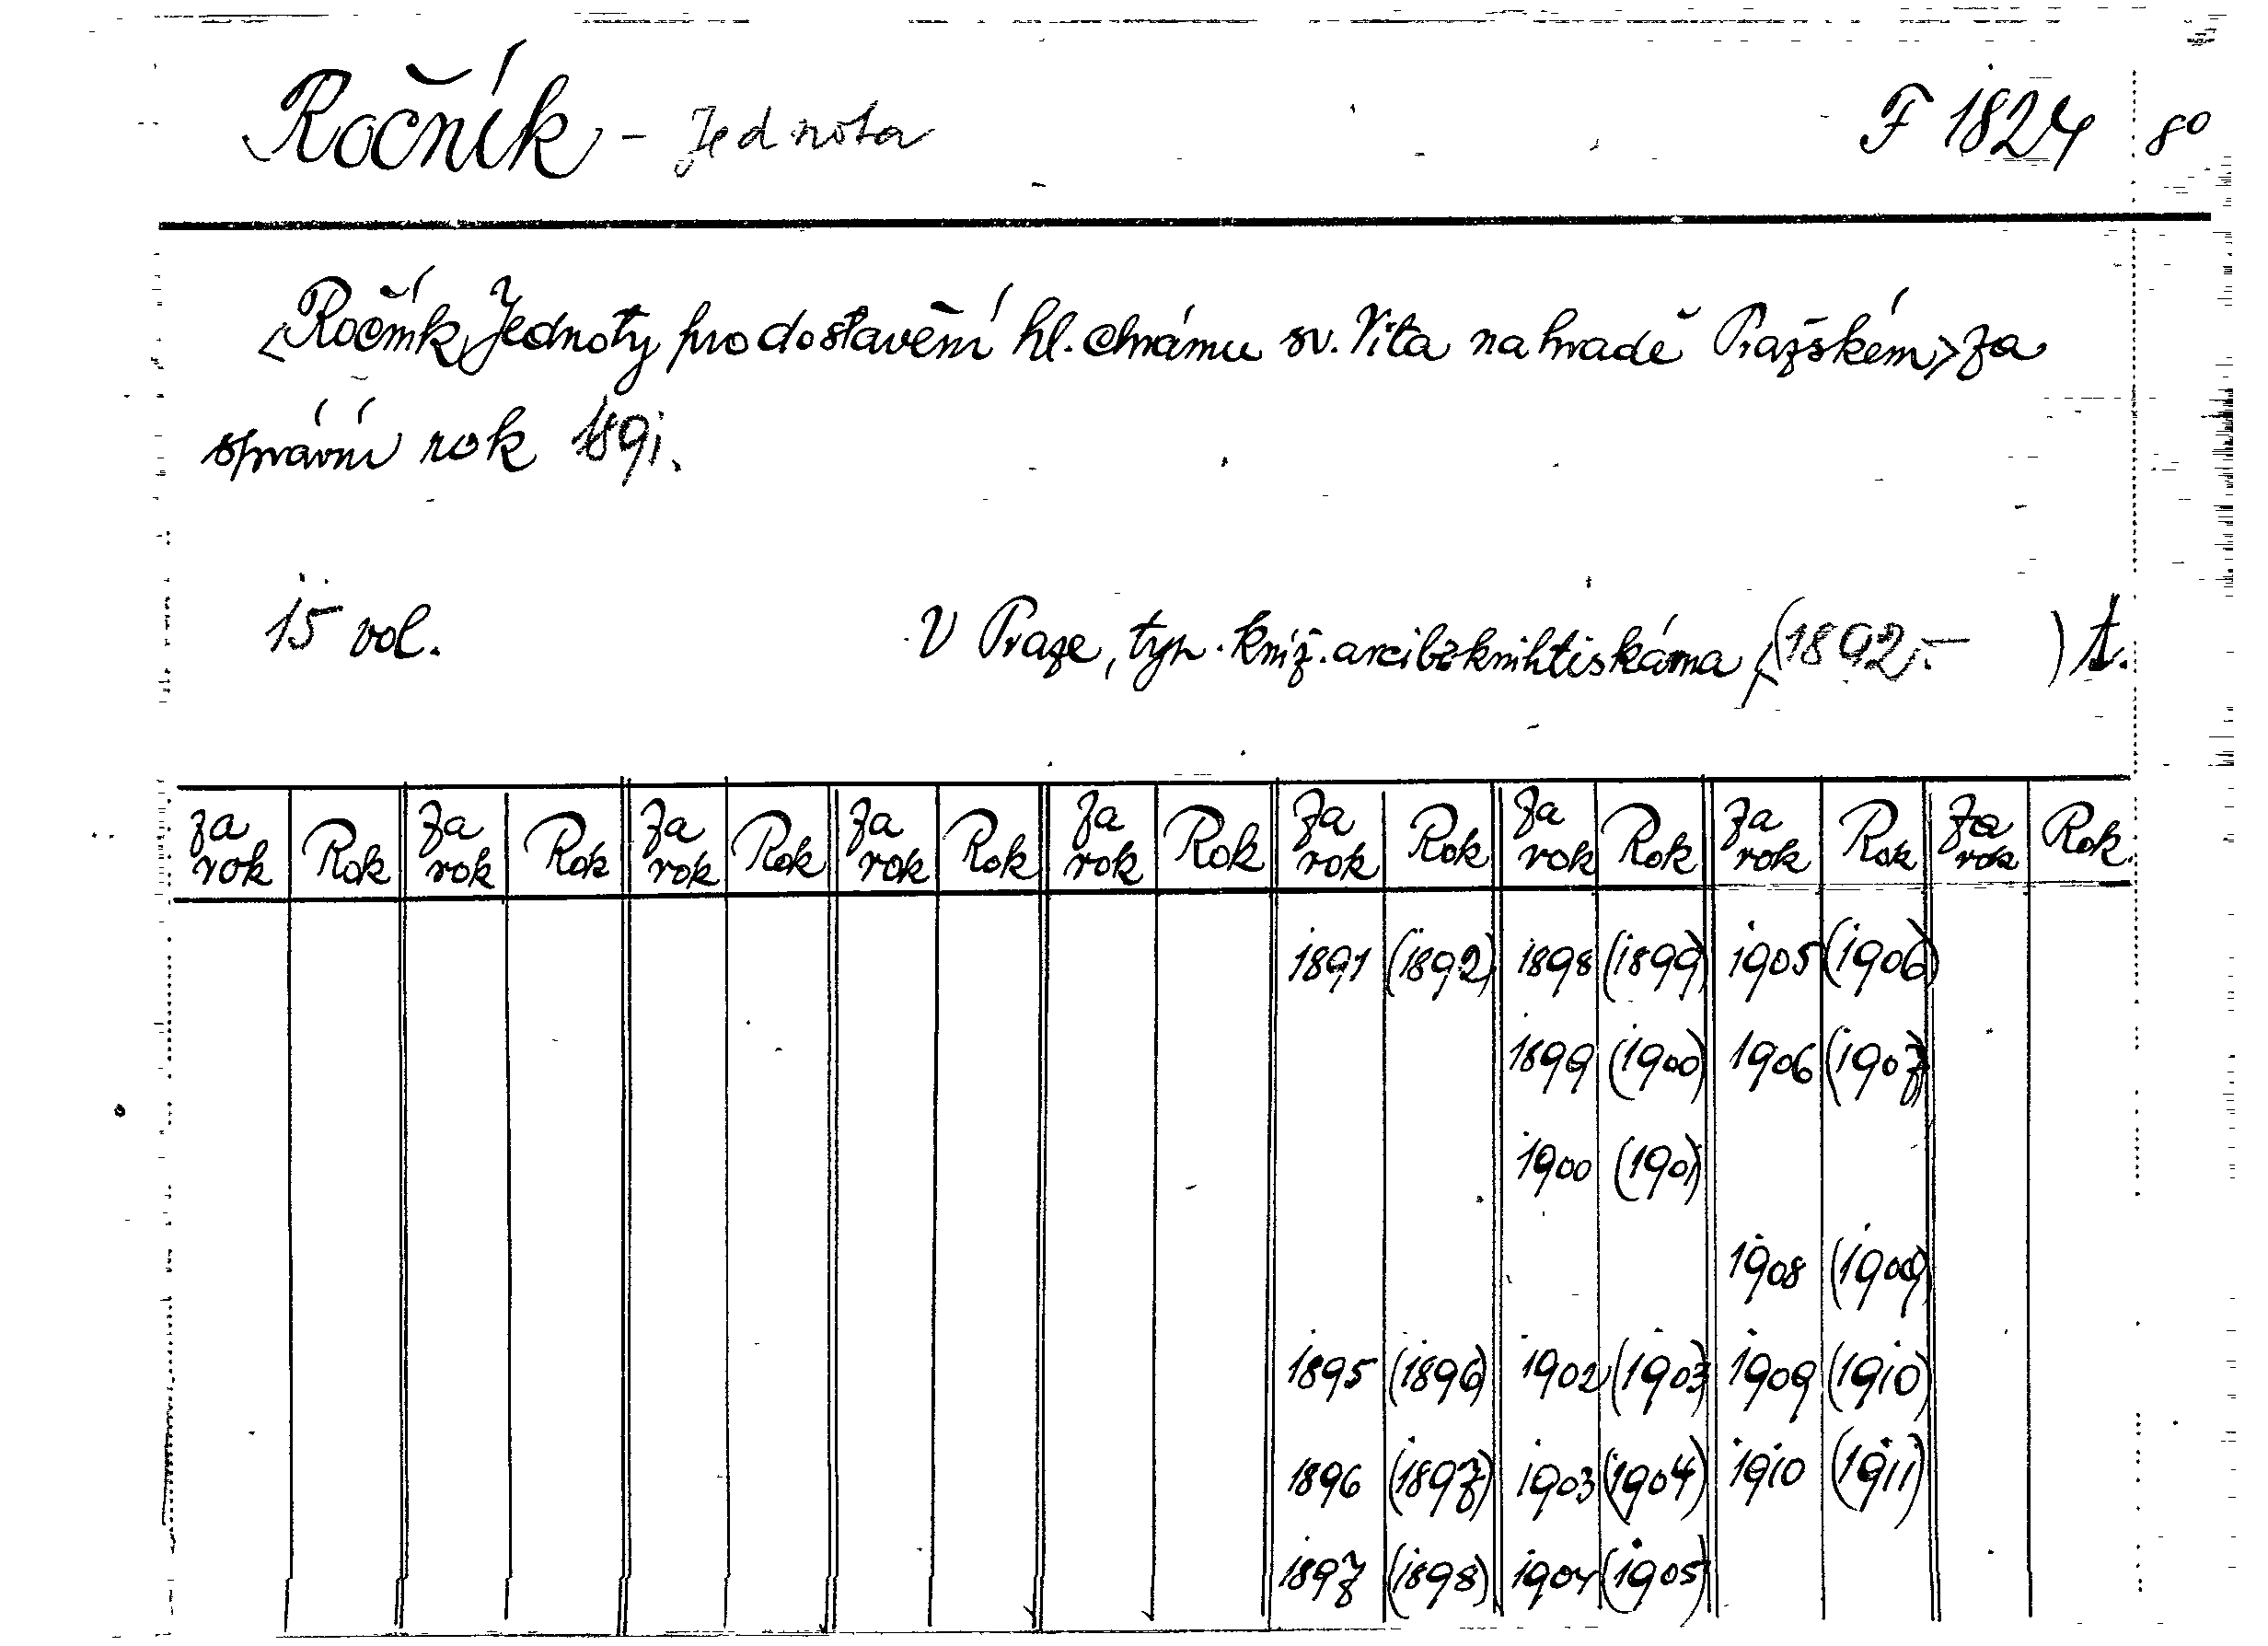 Ročník - Jednota F 1824 8°
<Ročník Jednoty pro dostavění hl. chrámu sv. Víta na hradě Pražském> za
správní rok 1891.
15 vol. V Praze, typ. kníž. arcib. knihtiskárna, (1892.- ) t.
za rok Rok za rok Rok za rok Rok za rok Rok za rok Rok za rok Rok za rok Rok za rok Rok za rok Rok
1891 (1892) 1898 (1899) 1905 (1906)
1899 (1900) 1906 (1907)
1900 (1901)
1908 (1909)
1895 (1896) 1902 (1903) 1909 (1910)
1896 (1897) 1903 (1904) 1910 (1911)
1897 (1898) 1904 (1905)